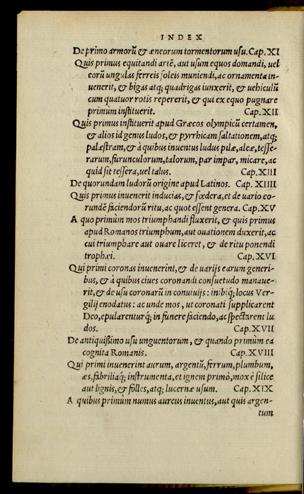 INDEX
De primo armorū & æneorum tormentorum usu. Cap. XI
Quis primus equitandi artē, aut usum equos domandi, uel
eorū ungulas ferreis soleis muniendi, ac ornamenta in-
uenerit, & bigas atq; quadrigas iunxerit, & uehiculū
cum quatuor rotis repererit, & qui ex equo pugnare
primùm instituerit. Cap. XII
Quis primus instituerit apud Græcos olympicū certamen,
& alios id genus ludos, & pyrrhicam saltationem, atq;
palæstram, & à quibus inuentus ludus pilæ, aleæ, tesse-
rarum, furunculorum, talorum, par impar, micare, ac
quid sit tessera, uel talus. Cap. XIII
De quorundam ludorū origine apud Latinos. Cap. XIIII
Quis primus inuenerit inducias, & fœdera, et de uario eo-
rundē faciendorū ritu, ac quot essent genera. Cap. XV
A quo primùm mos triumphandi fluxerit, & quis primus
apud Romanos triumphum, aut ouationem duxerit, ac
cui triumphare aut ouare liceret, & de ritu ponendi
trophæi. Cap. XVI
Qui primi coronas inuenerint, & de uarijs earum generi-
bus, & à quibus ciues coronandi consuetudo manaue-
rit, & de usu coronarū in conuiuijs: inibiq; locus Ver-
gilij enodatus: ac unde mos, ut coronati supplicarent
Deo, epularenturq; in funere faciendo, ac spectarent lu-
dos. Cap. XVII
De antiquißimo usu unguentorum, & quando primùm ea
cognita Romanis. Cap. XVIII
Qui primi inuenerint aurum, argentū, ferrum, plumbum,
æs, fabriliaq; instrumenta, et ignem primò, mox è silice
aut lignis, & folles, atq; lucernæ usum. Cap. XIX
A quibus primùm numus aureus inuentus, aut quis argen-
tum